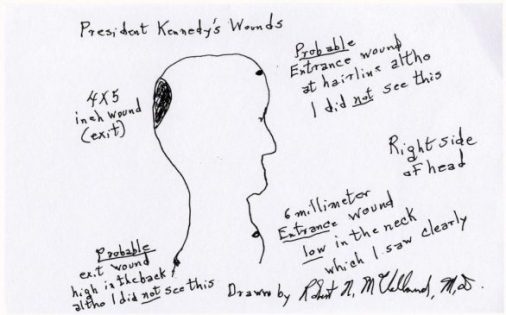 President Kennedy's Wounds
4X5
inch wound
(exit)
Probable
Entrance wound
at hairline altho
I did not see this
Right side
of head
6 millimeter
Entrance wound
low in the neck
which I saw clearly
Probable
exit wound
high in the back
altho I did not see this
Drawn by Robert N. McClelland, M.D.